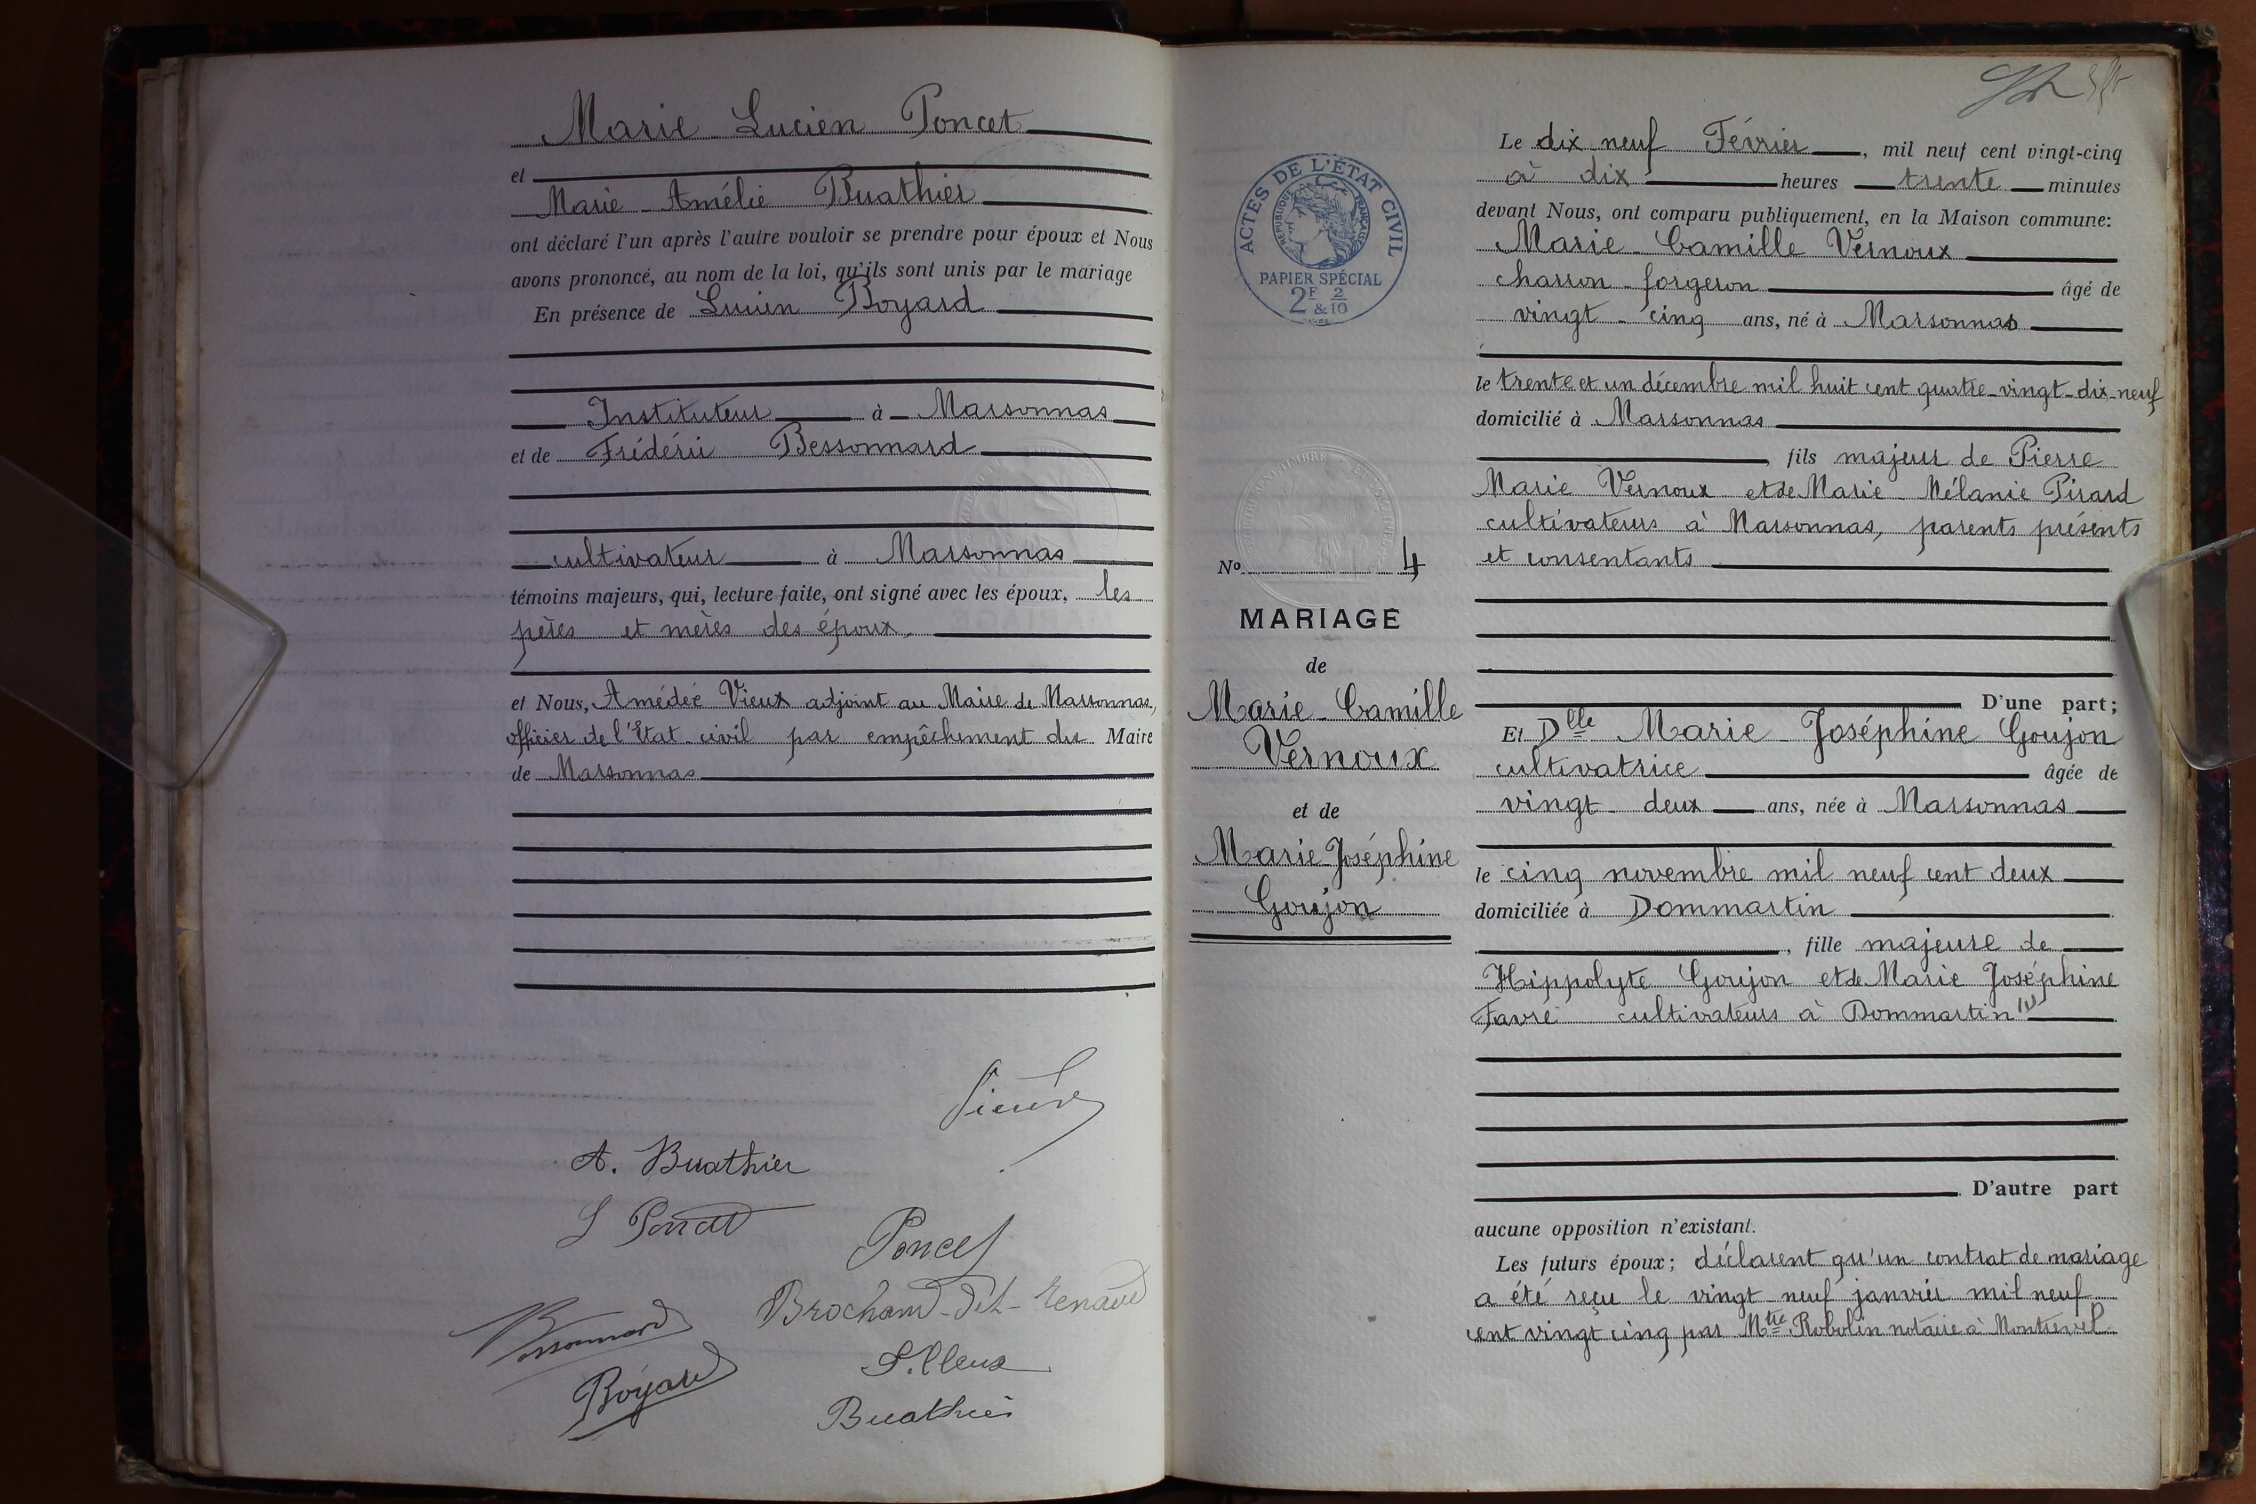 Marie Lucien Poncet
et
Marie Amélie Buathier
ont déclaré l'un après l'autre vouloir se prendre pour époux et Nous
avons prononcé, au nom de la loi, qu'ils sont unis par le mariage
En présence de Lucien Boyard
Instituteur à Marsonnas
et de Frédéric Bessonnard
cultivateur à Marsonnas
témoins majeurs, qui, lecture faite, ont signé avec les époux, les
pères et mères des époux,
et Nous, Amédée Vieux adjoint au Maire de Marsonnas,
officier de l'Etat-civil par empêchement du Maire
de Marsonnas
A. Buathier
Poncet
Brochand-dit-Renaud
Bessonnard
Boyard
Buathier
ACTES DE L'ÉTAT CIVIL
RÉPUBLIQUE FRANÇAISE
PAPIER SPÉCIAL
2F 2
& 10
No 4
MARIAGE
de
Marie-Camille
Vernoux
et de
Marie Joséphine
Goujon
Le dix neuf Février, mil neuf cent vingt-cinq
à dix heures trente minutes
devant Nous, ont comparu publiquement, en la Maison commune:
Marie-Camille Vernoux
charron-forgeron âgé de
vingt-cinq ans, né à Marsonnas
le trente et un décembre mil huit cent quatre-vingt-dix-neuf
domicilié à Marsonnas
, fils majeur de Pierre
Marie Vernoux et de Marie-Mélanie Pirard
cultivateurs à Marsonnas, parents présents
et consentants
D'une part;
Et Dlle Marie-Joséphine Goujon
cultivatrice âgée de
vingt-deux ans, née à Marsonnas
le cinq novembre mil neuf cent deux
domiciliée à Dommartin
, fille majeure de
Hippolyte Goujon et de Marie Joséphine
Favre cultivateurs à Dommartin (1)
D'autre part
aucune opposition n'existant.
Les futurs époux; déclarent qu'un contrat de mariage
a été reçu le vingt-neuf janvier mil neuf
cent vingt cinq par Mtre Robolin notaire à Montrevel